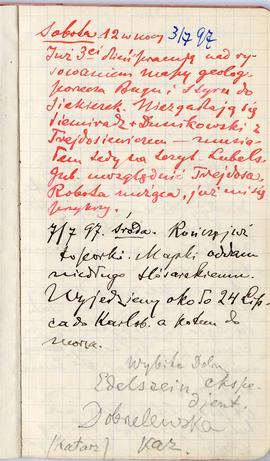 Sobota 12 w nocy 3/7 97
Już 3ci dzień pracuję nad ry-
sowaniem mapy geolog.
porzecza Bugu i Styru do
Siekierek. Niezgadzają się
Siemiradz + Dunikowski z
Trejdosiewiczem – musia-
łem tedy na teryt. Lubels.
gub. uwzględnić Trejdosa.
Robota nużąca, już mi się
przykrzy.
7/7 97. środa. Kończę już
Toporki. Mapki oddam
niedługo Ślósarskiemu.
Wyjedziemy około 24 Lip-
ca do Karlsb. a potem do
morza.
Wybita Dolna
Edelszein ekspe-
djent.
Dobrzelewska
(Katarz) Kaz.